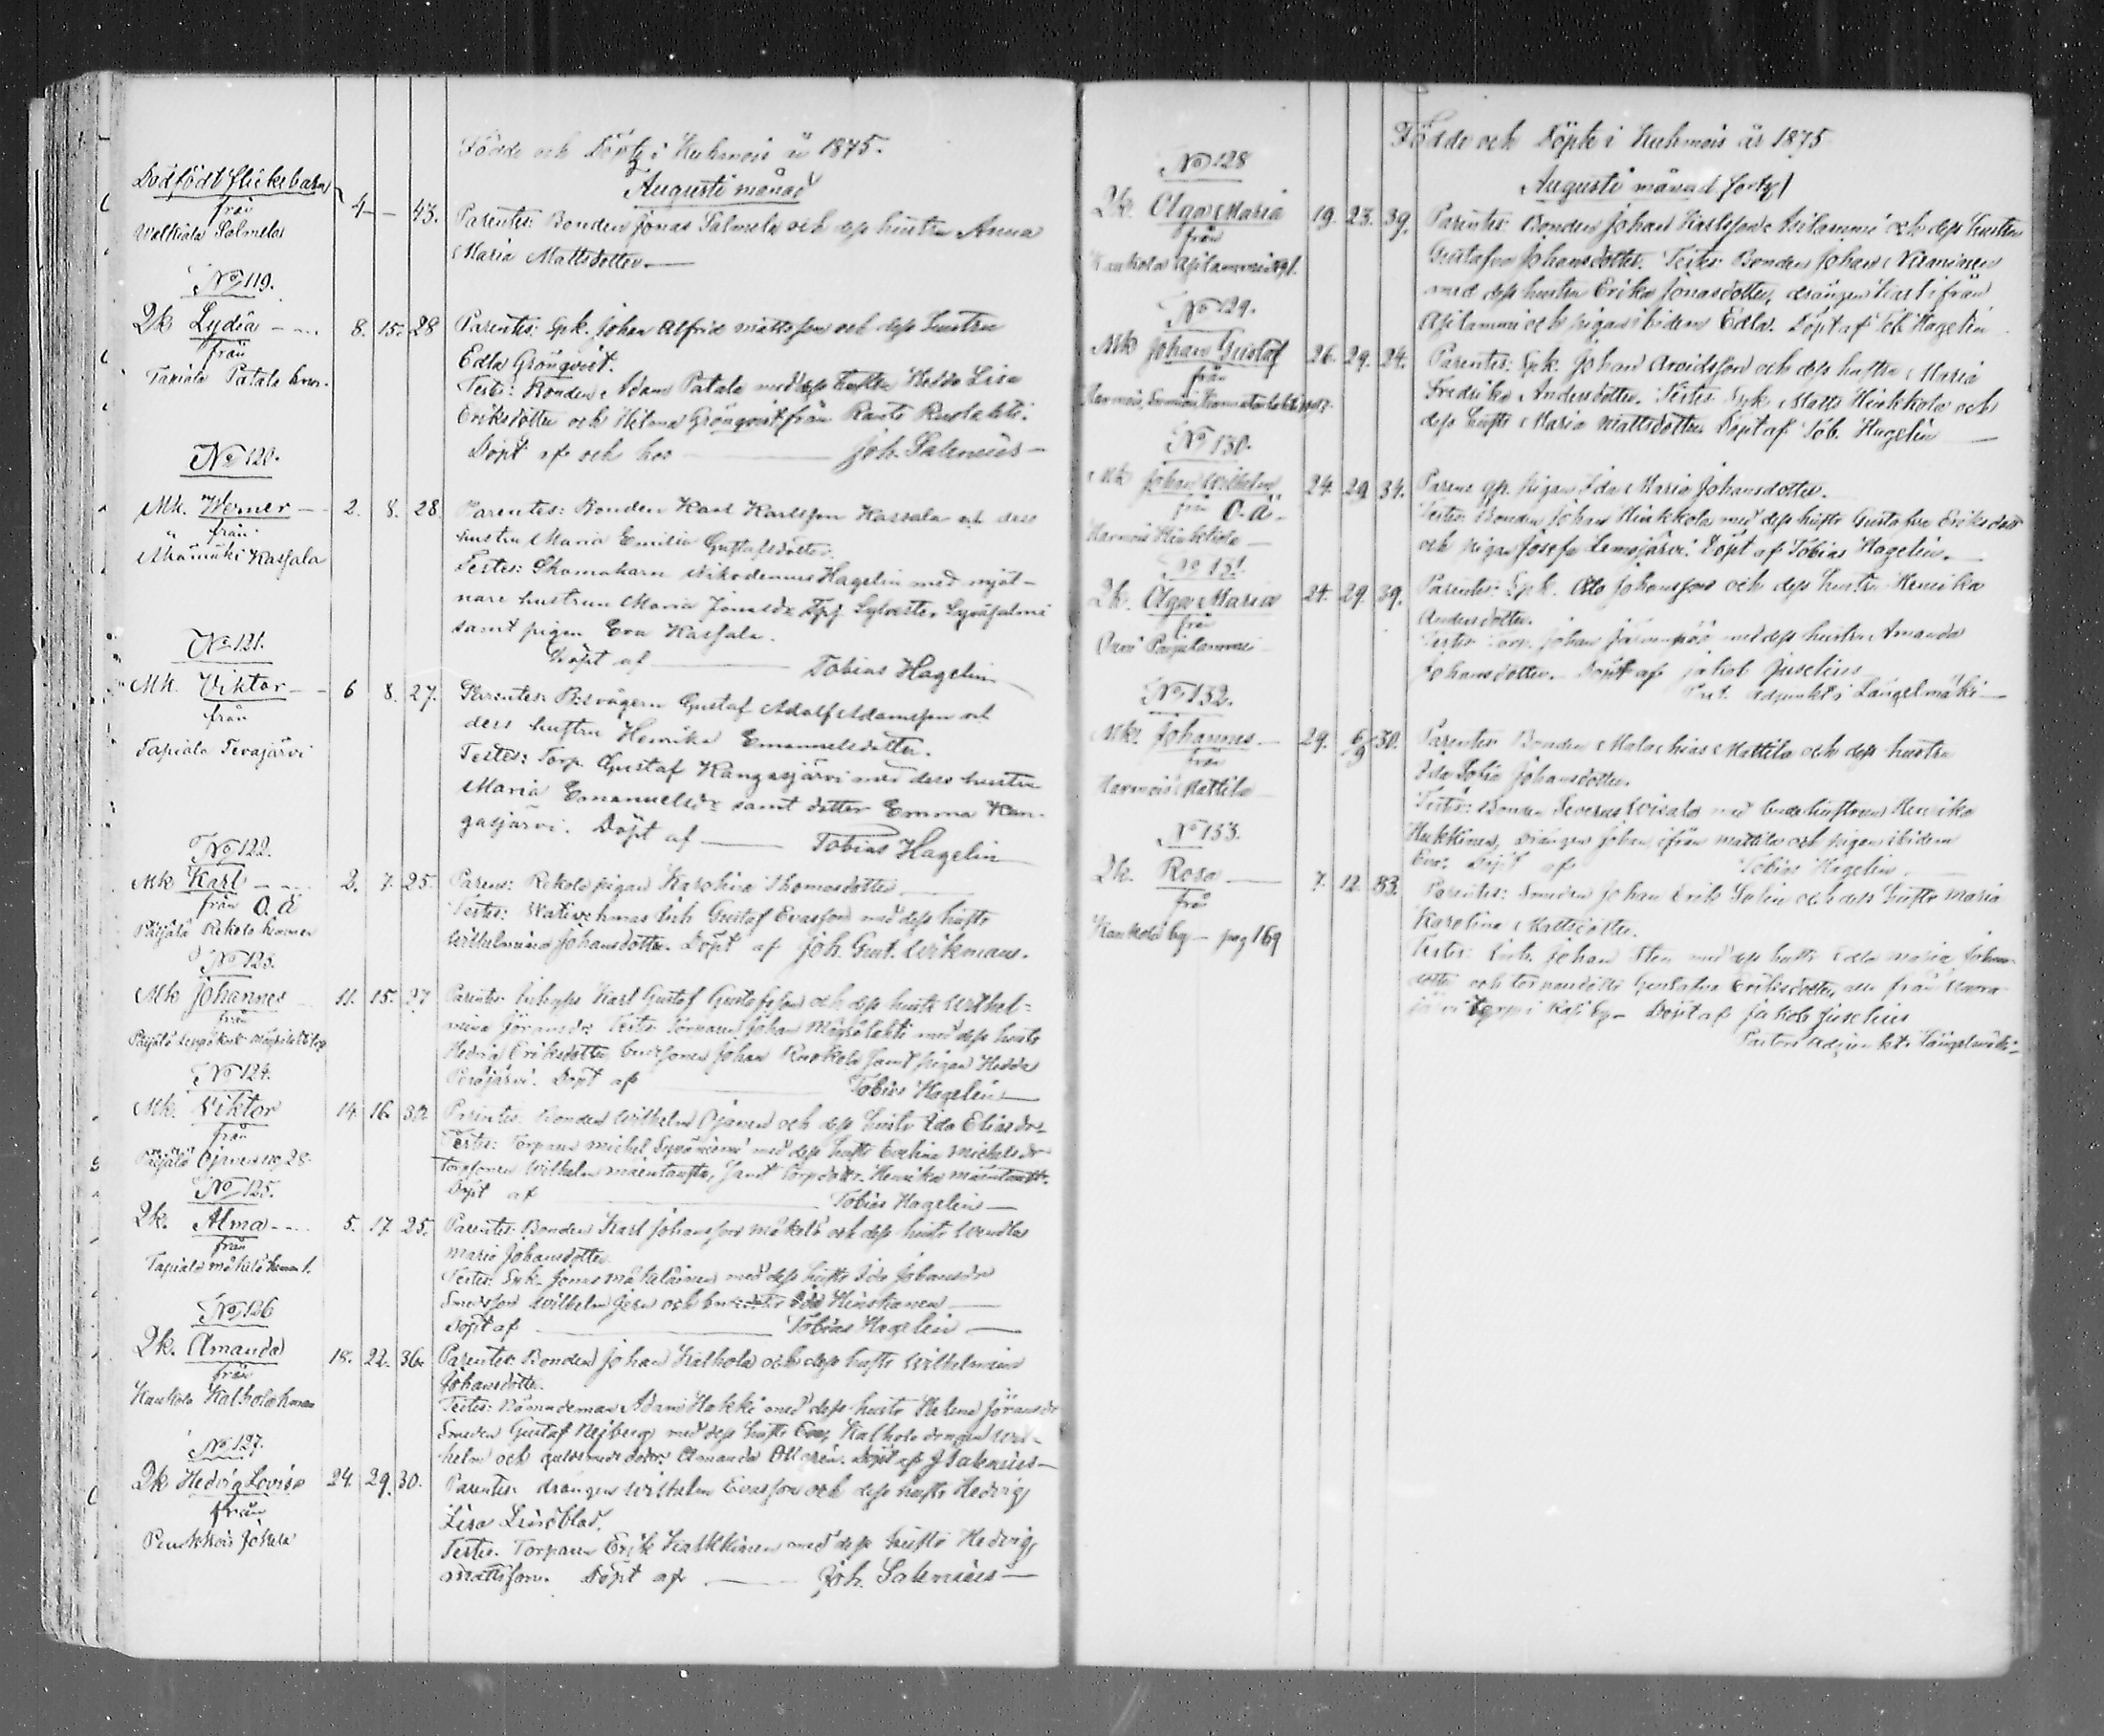 Födde och Döpte i Kuhmois år 1875.
Augusti månad
Dödfödt flickebarn
från
Wellkiala Salmela
4 — — 43.
Parentes: Bonden Jonas Salmela och dess hustru Anna
Maria Mattsdotter. —
No 119.
Qk Lydia — 8. 15. 28
från
Tapiala Patala hem.
Parentes: Spk. Johan Alfrid Mattsson och dess hustru
Edla Grönqvist.
Testes: Bonden Adam Patala med dess hustru Hedda Lisa
Eriksdotter och Helena Grönqvist från
Döpt af och hos — Joh. Salenius —
No 120.
Mk. Werner — 2. 8. 28
från
Mämäki Kassala
Parentes: Bonden Karl Karlsson Kassala och dess
hustru Maria Emilia Gustafsdotter.
Testes: Skomakarn Nikodemus Hagelin med mjöl-
nare hustrun Maria Jonasdr. Sylvester
samt pigan Eva Kassala.
Döpt af — Tobias Hagelin
No 121.
Mk. Viktor — 6 8. 27.
från
Tapiala Tevajärvi
Parentes: Gustaf Adolf Adamsson och
dess hustru Henrika Emanuelsdotter.
Testes: Torp. Gustaf Kangasjärvi med dess hustru
Maria Emanuelsdr samt dotter Emma Kan-
gasjärvi. Döpt af — Tobias Hagelin
No 122.
Mk Karl — 2. 7. 25.
från O. ä
Päijälä Rekola hemman
Parens: Rekola pigan Karolina Thomasdotter —
Testes: Gustaf Evasson med dess hustr
Wilhelmina Johansdotter. Döpt af Joh. Gust. Wikman.
No 123.
Mk Johannes 11. 15. 27
från
Päijälä
Parentes: Karl Gustaf Gustafsson och dess hustr Wilhel-
mina Jöransdr. Testes Torparn Johan med dess hustr
Hedvig Eriksdotter, Johan Ruokola samt pigan Hedda
Döpt af — Tobias Hagelin —
No 124.
Mk. Viktor 14. 16. 32
från
Päijälä Ojanen no 28.
Parentes: Bonden Wilhelm Ojanen och dess hustr Ida Eliasdr.
Testes: Torparn Michel med dess hustr Evelina Michelsdr
Torpsonen Wilhelm samt torpdottr. Henrika
Döpt af — Tobias Hagelin —
No 125.
Qk. Alma — 5. 17. 25.
från
Tapiala Mäkelä hem 1.
Parentes: Bonden Karl Johansson Mäkelä och dess hustr Wendla
Maria Johansdotter.
Testes: Spk. Jonas Mäkeläinen med dess hustr Ida Johansdr
Smedsson Wilhelm och Ida —
Döpt af — Tobias Hagelin —
No 126
Qk. Amanda 18. 22. 36.
från
Kaukola Kalhola hman
Parentes: Bonden Johan Kalhola och dess hustr Wilhelmina
Johansdotter.
Testes: Nämndeman Adam Hakki med dess hustr Helena Jöransdr
Smeden Gustaf Nyberg med dess hustr Eva, Kalhola drengen Wil-
helm och Amanda Döpt af J Salenius —
No 127.
Qk Hedvig Lovisa 24. 29. 30.
från
Puukkois Jokela
Parentes: drängen Wilhelm Evasson och dess hustr Hedvig
Lisa Lindblad.
Testes. Torparn Erik med dess hustr Hedvig
Mattsson. Döpt af — Joh. Salenius —
Födde och Döpte i Kuhmois år 1875
Augusti månad forts.
No 128
Qk. Olga Maria 19. 23. 39.
från
Kaukola Asilammi
Parentes: Bonden Johan Karlsson Asilammi och dess hustru
Gustafva Johansdotter. Testes Bonden Johan
med dess hustru Erika Jonasdotter, drängen Karl ifrån
Asilammi och pigan ibidem Edla. Döpt af Tob. Hagelin
No 129.
Mk Johan Gustaf 26. 29. 24.
från
Harmois
Parentes: Spk. Johan Arvidsson och dess hustru Maria
Fredrika Andersdotter. Testes Spk. Matts Hinkkola och
dess hustr Maria Mattsdotter Döpt af Tob. Hagelin —
No 130.
Mk Johan Wilhelm 24. 29 34.
från O. ä.
Harmois Hinkkola —
Parens pigan Ida Maria Johansdotter.
Testes: Bonden Johan Hinkkola med dess hustr Gustafva Eriksdotr
och pigan Josefa Lemujärvi. Döpt af Tobias Hagelin. —
No 131.
Qk. Olga Maria 24. 29. 39.
från
Parentes: Spk. Otto Johansson och dess hustru Henrika
Andersdotter.
Testes Torp. Johan med dess hustru Amanda
Johansdotter. Döpt af Jakob Juselius
Past. Adjunkt i Längelmäki —
No 132.
Mk. Johannes — 29. 6/9 30.
från
Harmois Mattila
Parentes Bonden Malachias Mattila och dess hustru
Ida Sofia Johansdotter.
Testes: Bonden Severus med Henrika
Hukkinen, drängen Johan ifrån Mattila och pigan ibidem
Eva. Döpt af Tobias Hagelin. —
No 133.
Qk. Rosa — 7. 12. 33.
från
Kaukola by — pag 169
Parentes: Smeden Johan Erik Salin och dess hustr Maria
Karolina Mattsdotter.
Testes: Johan Sten med dess hustr Edla Maria Johans-
dotter och Gustafva Eriksdotter, alla från
Döpt af Jakob Juselius
Pastors Adjunkt i Längelmäki —